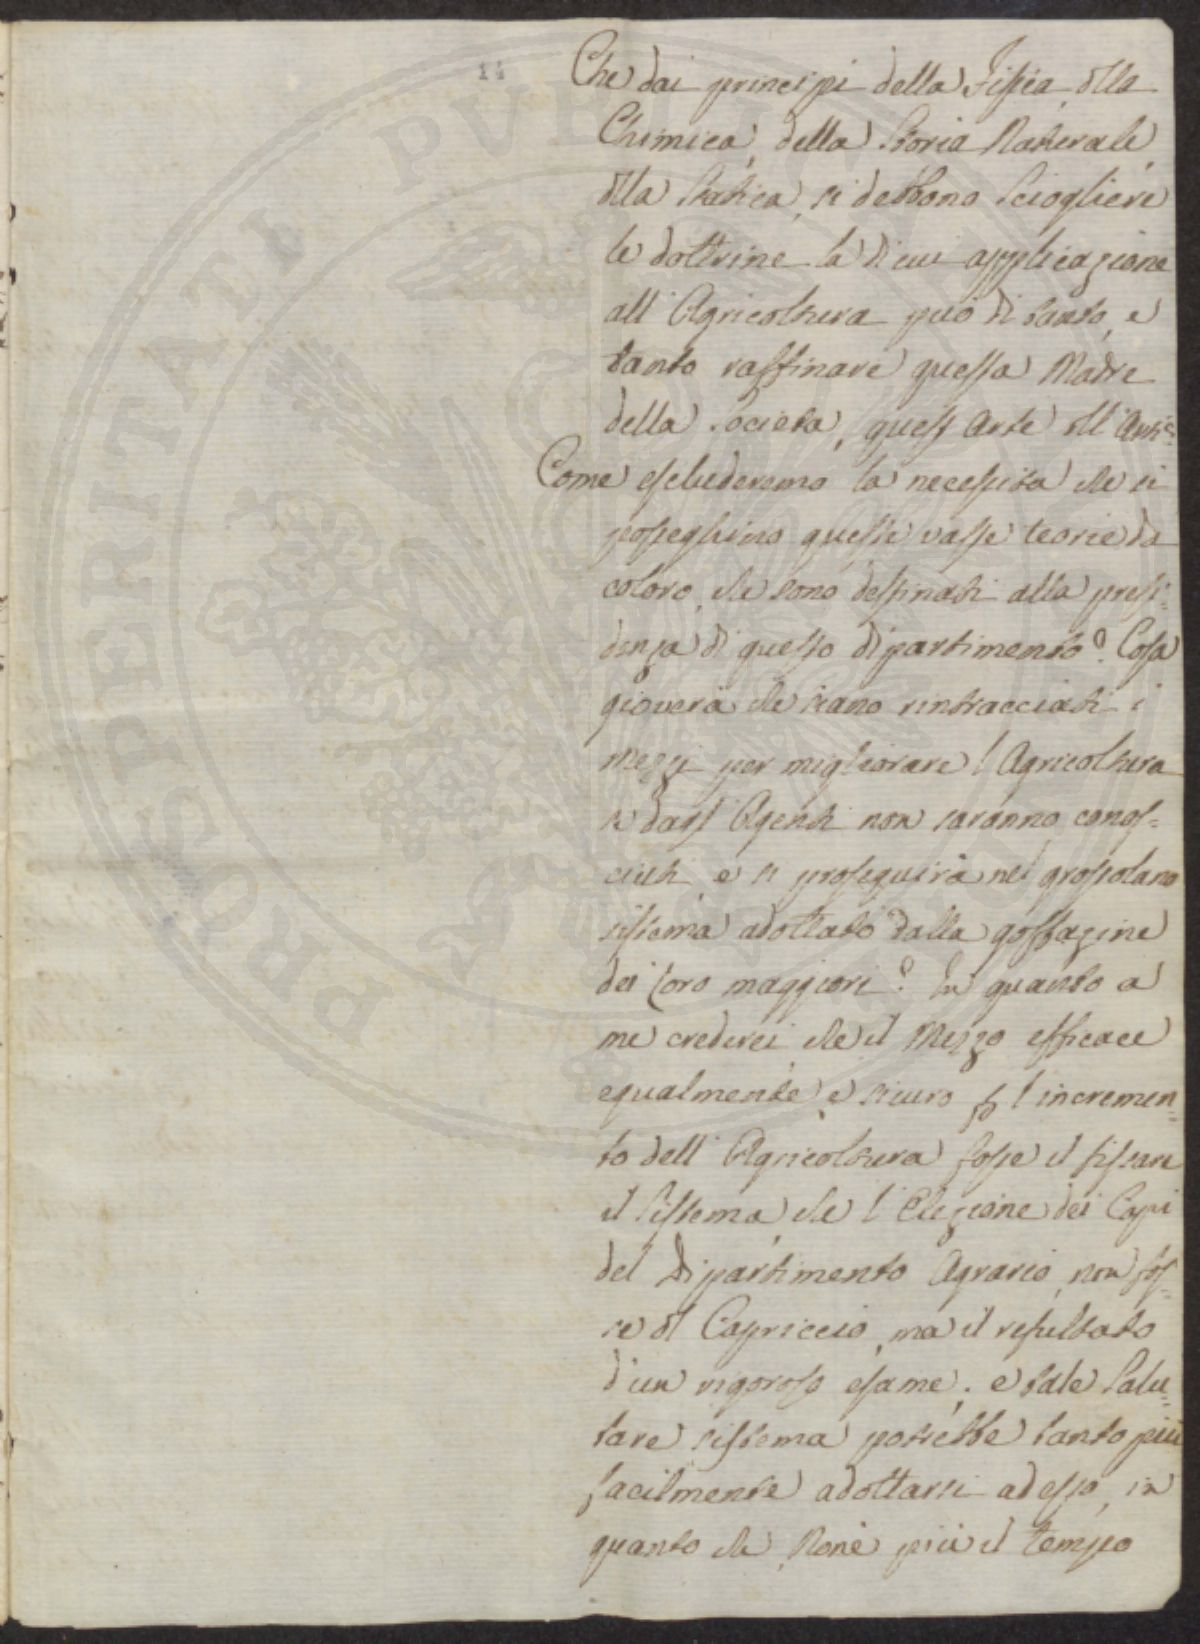 14
Che dai principj della Fisica, dlla
Chimica, della Storia Naturale,
dlla Statica, si debbono sciogliere
le dottrine la di cui applicazione
all'Agricoltura può di tanto, e
tanto raffinare questa Madre
della Società, quest'Arte dll'Arti:
Come escluderemo la necessità che si
posseghino queste vaste teorie da
coloro, che sono destinati alla presi-
denza di questo dipartimento? Cosa
gioverà che siano rintracciati i
mezzi per migliorare l'Agricoltura
se dagl'Agenti non saranno conos-
ciuti, e si proseguirà nel grossolano
sistema adottato dalla goffagine
dei loro maggiori? In quanto a
me crederei, che il Mezzo efficace
egualmente, e sicuro p l'incremen-
to dell'Agricoltura fosse il fissare
il Sistema, che l'Elezione dei Capi
del Dipartimento Agrario, non fos-
se dl Capriccio, ma il resultato
d'un rigoroso esame; e tale Salu-
tare sistema potrebbe tanto più
facilmente adottarsi adesso, in
quanto che Non è più il tempo
PROSPERITATI PUBLICAE